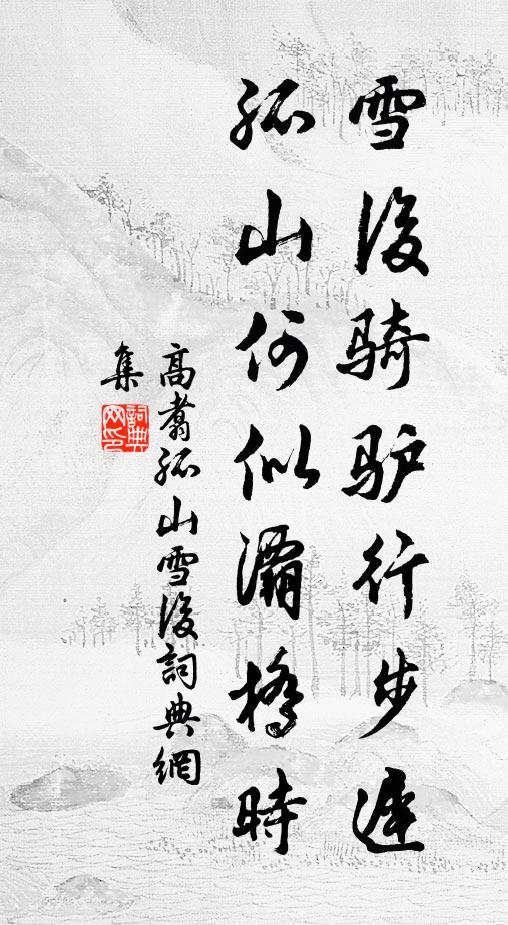 雪後骑驴行步遲
孤山何似灞橋時
高翥孤山雪後詞典網
集
詞典网印